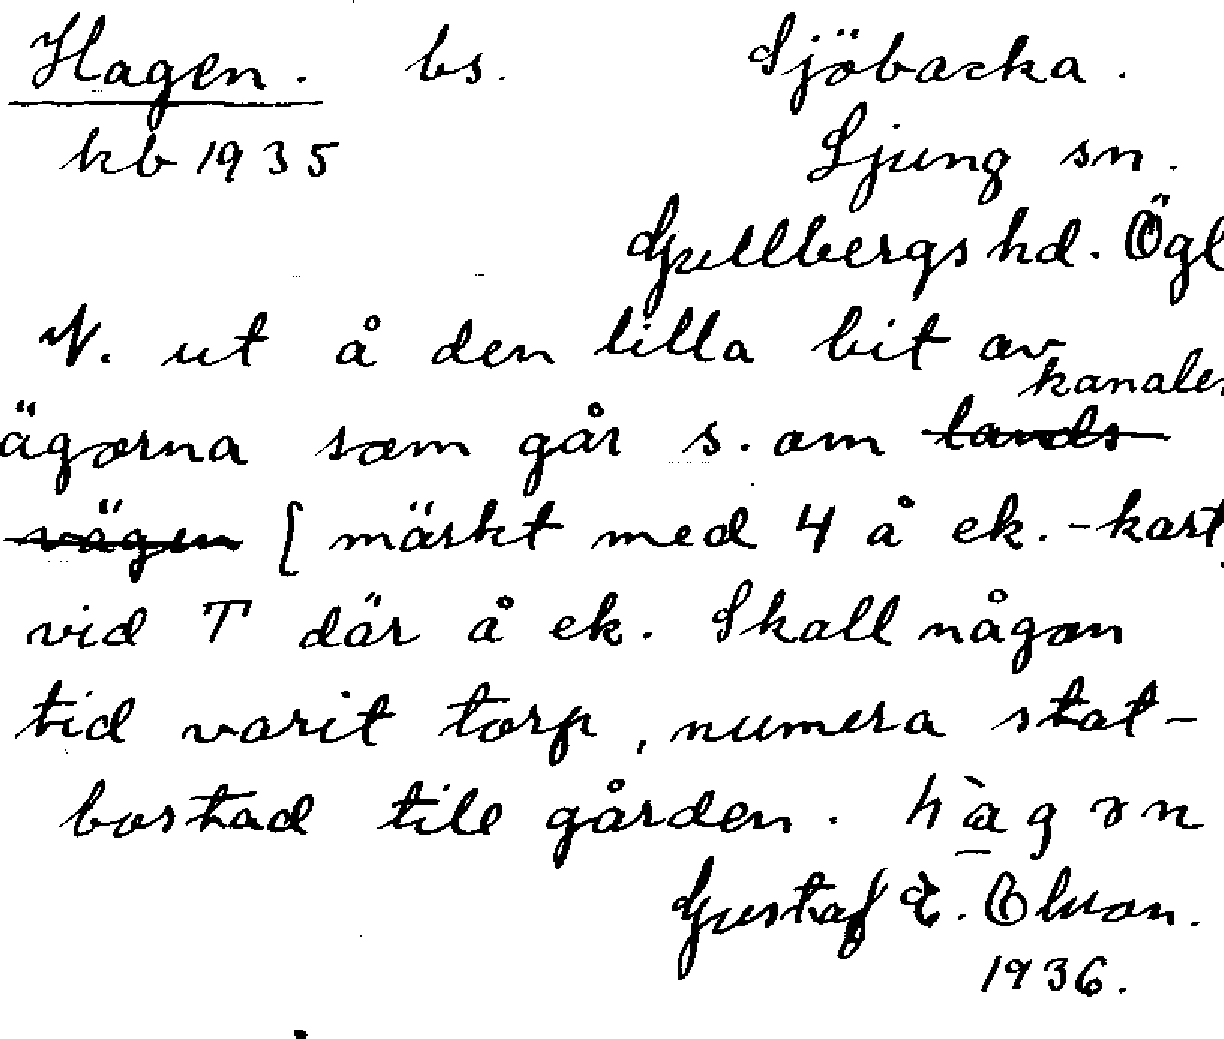 Hagen. bs. Sjöbacka.
kb 1935 Ljung sn.
Gullbergs hd. Ögl
N. ut å den lilla bit av
kanalen
ägorna som går s. om lands
vägen [märkt med 4 å ek.-kart,
vid T där å ek. Skall någon
tid varit torp, numera stat-
bostad till gården. hàgɤn
Gustaf E. Olson.
1936.